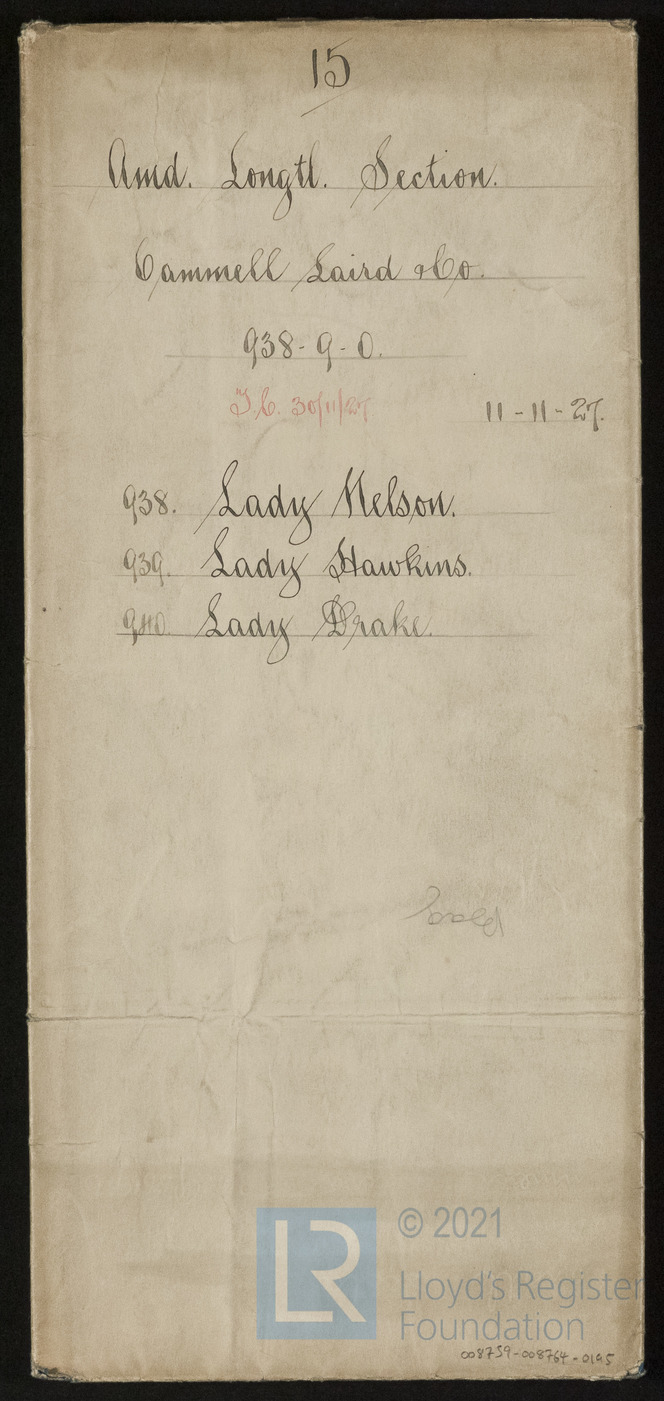 15
Amd. Longtl. Section.
Cammell Laird & Co.
938-9-0.
30/11/27
11-11-27.
938. Lady Nelson.
939. Lady Hawkins.
940. Lady Drake.
LR
© 2021
Lloyd's Register
Foundation
008759-008764-0195